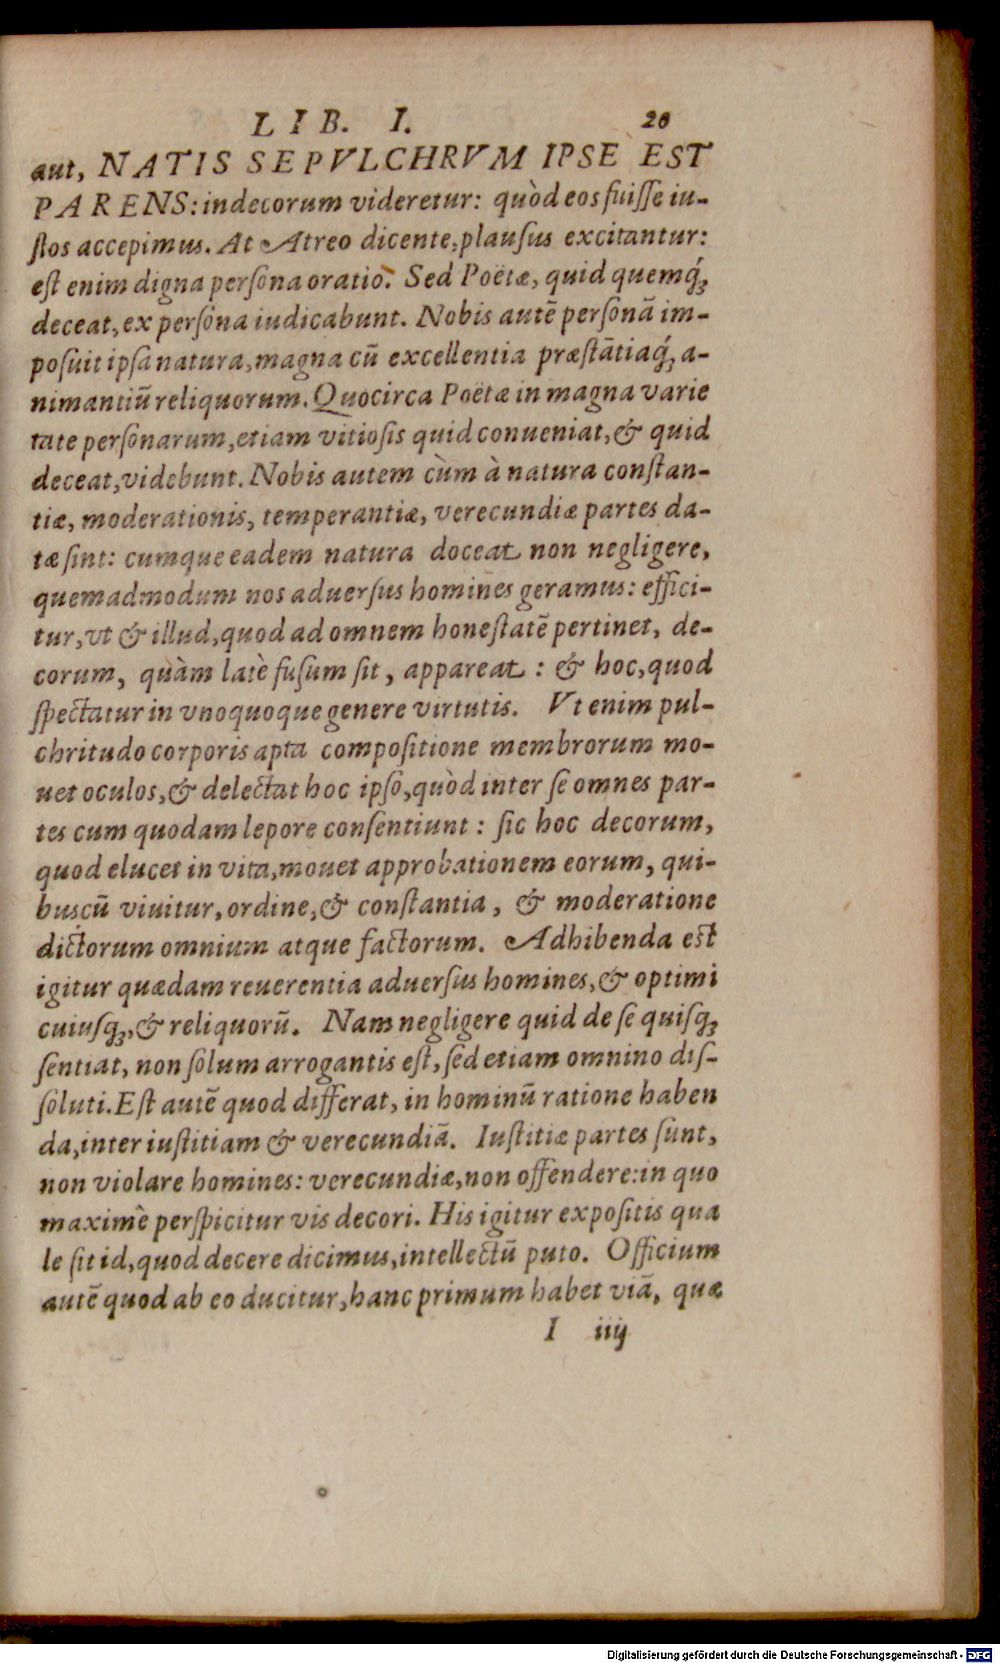 LIB. I. 28
aut, NATIS SEPVLCHRVM IPSE EST
PARENS: indecorum videretur: quòd eos fuiſſe iu-
ſtos accepimus. At Atreo dicente, plauſus excitantur:
eſt enim digna perſona oratio. Sed Poëtæ, quid quemq́;
deceat, ex perſona iudicabunt. Nobis autē perſonā im-
poſuit ipſa natura, magna cū excellentia præſtātiaq́;, a-
nimantiū reliquorum. Quocirca Poëtæ in magna varie
tate perſonarum, etiam vitioſis quid conueniat, & quid
deceat, videbunt. Nobis autem cùm à natura conſtan-
tiæ, moderationis, temperantiæ, verecundiæ partes da-
tæ ſint: cumque eadem natura doceat non negligere,
quemadmodum nos aduerſus homines geramus: effici-
tur, vt & illud, quod ad omnem honeſtatē pertinet, de-
corum, quàm latè fuſum ſit, appareat: & hoc, quod
ſpectatur in vnoquoque genere virtutis. Vt enim pul-
chritudo corporis apta compoſitione membrorum mo-
uet oculos, & delectat hoc ipſo, quòd inter ſe omnes par-
tes cum quodam lepore conſentiunt: ſic hoc decorum,
quod elucet in vita, mouet approbationem eorum, qui-
buſcū viuitur, ordine, & conſtantia, & moderatione
dictorum omnium atque factorum. Adhibenda eſt
igitur quædam reuerentia aduerſus homines, & optimi
cuiuſq;, & reliquorū. Nam negligere quid de ſe quiſq;
ſentiat, non ſolum arrogantis eſt, ſed etiam omnino diſ-
ſoluti. Eſt autē quod differat, in hominū ratione haben
da, inter iuſtitiam & verecundiā. Iuſtitiæ partes ſunt,
non violare homines: verecundiæ, non offendere: in quo
maximè perſpicitur vis decori. His igitur expoſitis qua
le ſit id, quod decere dicimus, intellectū puto. Officium
autē quod ab eo ducitur, hanc primum habet viā, quæ
I iiij
Digitalisierung gefördert durch die Deutsche Forschungsgemeinschaft - DFG